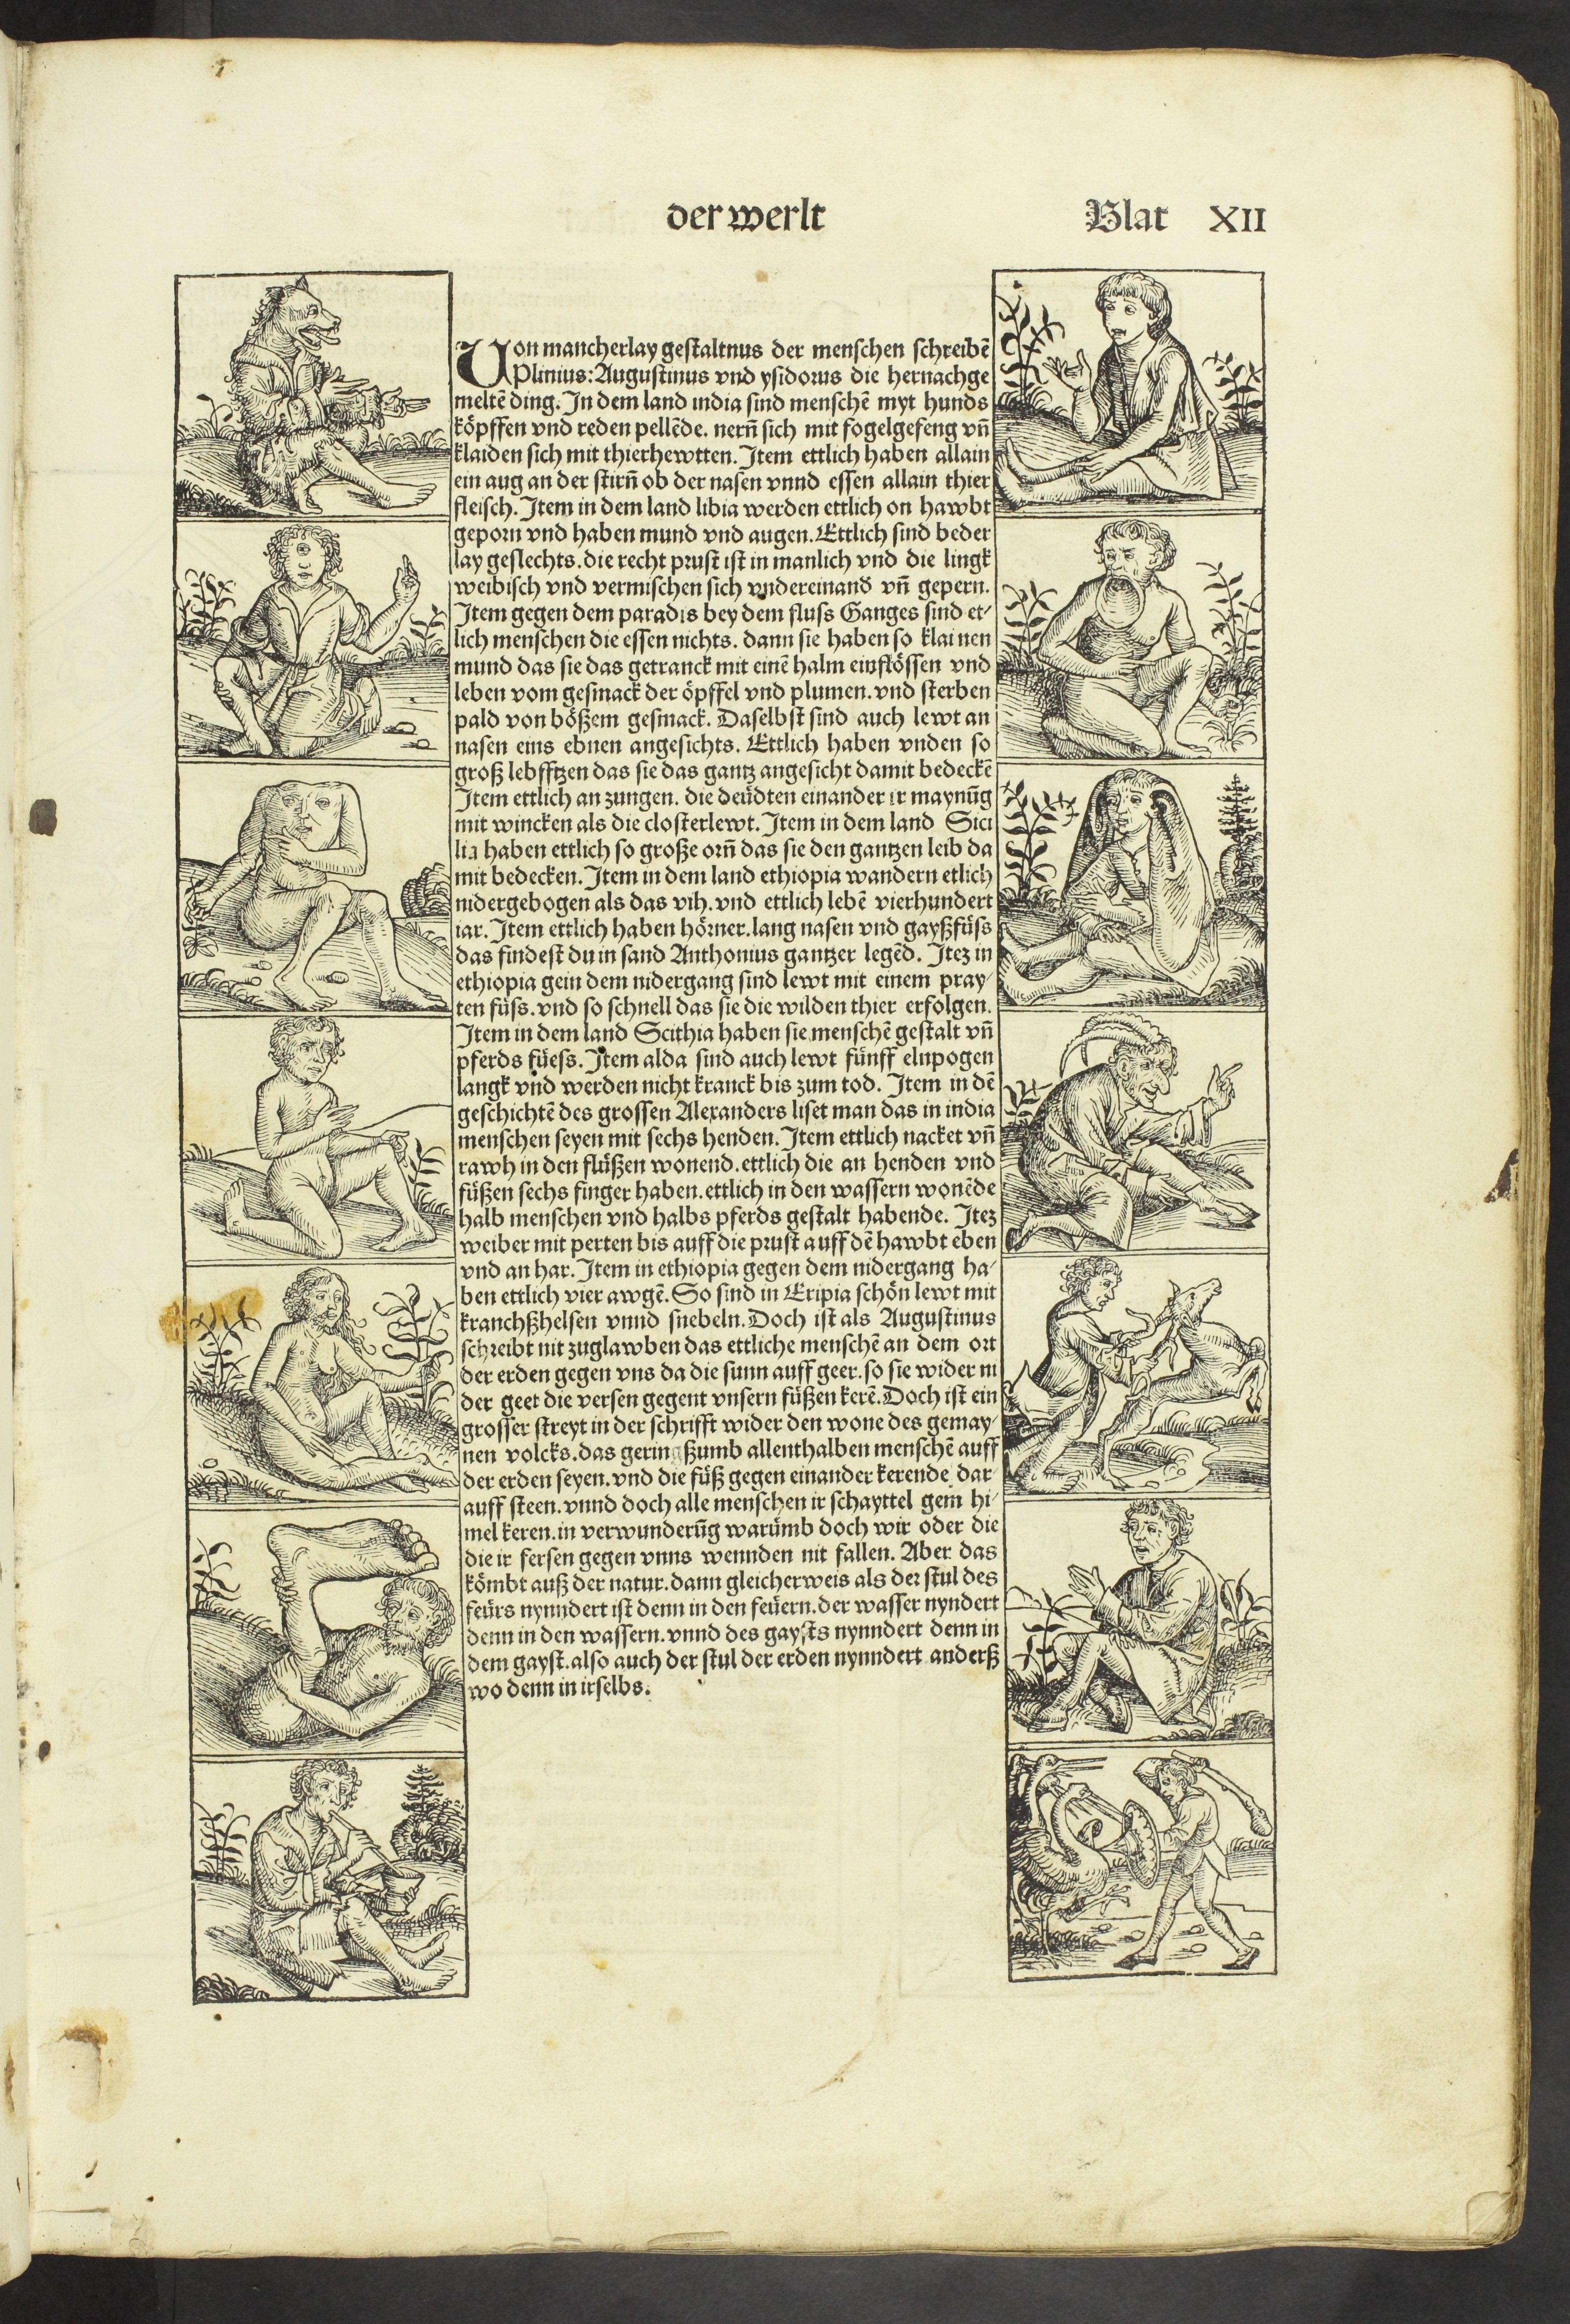 der werlt
Blat XII
Von mancherlay gestaltnus der menschen schreibē
Plinius: Augustinus vnd ysidorus die hernachge
meltē ding. In dem land india sind menschē myt hunds
köpffen vnd reden pellēde. nern̄ sich mit fogelgefeng vn̄
klaiden sich mit thierhewtten. Item ettlich haben allain
ein aug an der stirn̄ ob der nasen vnnd essen allain thier
fleisch. Item in dem land libia werden ettlich on hawbt
geporn vnd haben mund vnd augen. Ettlich sind beder
lay geslechts. die recht prust ist in manlich vnd die lingk
weibisch vnd vermischen sich vndereinand̄ vn̄ gepern.
Item gegen dem paradis bey dem fluss Ganges sind et-
lich menschen die essen nichts. dann sie haben so klainen
mund das sie das getranck mit einē halm einflössen vnd
leben vom gesmack der öpffel vnd plumen. vnd sterben
pald von bößem gesmack. Daselbst sind auch lewt an
nasen eins ebnen angesichts. Ettlich haben vnden so
groß lebfftzen das sie das gantz angesicht damit bedeckē
Item ettlich an zungen. die deüdten einander ir maynūg
mit wincken als die closterlewt. Item in dem land Sici
lia haben ettlich so große orn̄ das sie den gantzen leib da
mit bedecken. Item in dem land ethiopia wandern etlich
nidergebogen als das vih. vnd ettlich lebē vierhundert
iar. Item ettlich haben hörner. lang nasen vnd gayßfüss
das findest du in sand Anthonius gantzer legēd. Itez in
ethiopia gein dem nidergang sind lewt mit einem pray-
ten füss. vnd so schnell das sie die wilden thier erfolgen.
Item in dem land Scithia haben sie menschē gestalt vn̄
pferds füess. Item alda sind auch lewt fünff elnpogen
langk vnd werden nicht kranck bis zum tod. Item in dē
geschichtē des grossen Alexanders liset man das in india
menschen seyen mit sechs henden. Item ettlich nacket vn̄
rawh in den flüßen wonend. ettlich die an henden vnd
füßen sechs finger haben. ettlich in den wassern wonēde
halb menschen vnd halbs pferds gestalt habende. Itez
weiber mit perten bis auff die prust auff dē hawbt eben
vnd an har. Item in ethiopia gegen dem nidergang ha-
ben ettlich vier awgē. So sind in Eripia schön lewt mit
kranchßhelsen vnnd snebeln. Doch ist als Augustinus
schreibt nit zuglawben das ettliche menschē an dem ort
der erden gegen vns da die sunn auff geet. so sie wider ni
der geet die versen gegent vnsern füßen kerē. Doch ist ein
grosser streyt in der schrifft wider den wone des gemay-
nen volcks. das geringßumb allenthalben menschē auff
der erden seyen. vnd die füß gegen einander kerende dar
auff steen. vnnd doch alle menschen ir schayttel gein hi-
mel keren. in verwunderūg warümb doch wir oder die
die ir fersen gegen vnns wennden nit fallen. Aber das
kömbt auß der natur. dann gleicherweis als der stul des
feürs nynndert ist denn in den feüern. der wasser nyndert
denn in den wassern. vnnd des gaysts nynndert denn in
dem gayst. also auch der stul der erden nynndert anderß
wo denn in irselbs.